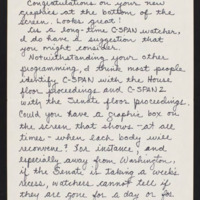 Congratulations on your new
graphic at the bottom of the
screen. Looks great!
As a long-time C-SPAN watcher,
I do have a suggestion that
you might consider.
Notwithstanding your other
programming, I think most people
identify C-SPAN with the House
floor proceedings and C-SPAN2
with the Senate floor proceedings.
Could you have a graphic box on
the screen that shows - at all
times - when each body will
reconvene? For instance, and
especially away from Washington,
if the Senate is taking a week's
recess, watchers cannot tell if
they are gone for a day or for